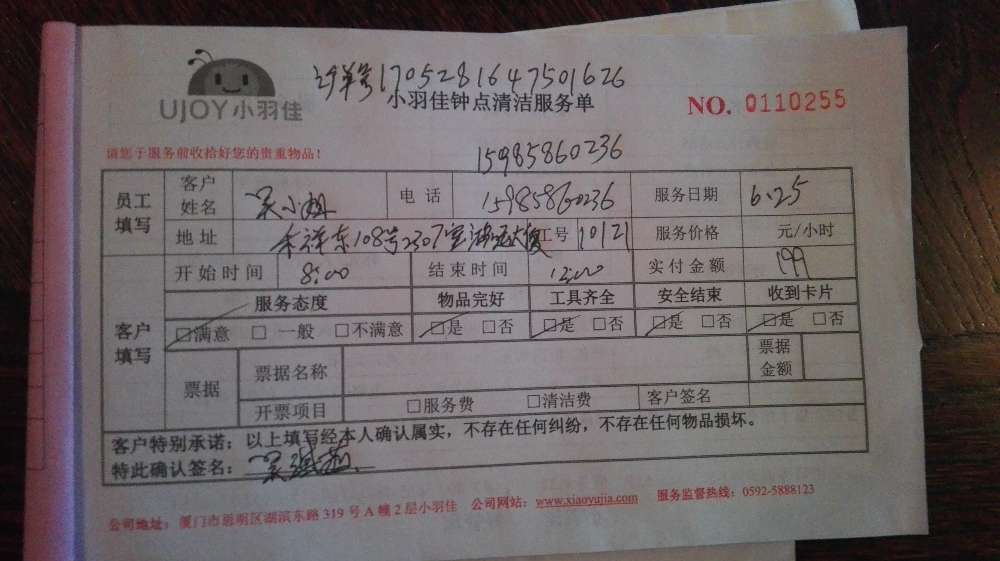 订单号1705281647501626
UJOY小羽佳
小羽佳钟点清洁服务单
NO. 0110255
请您于服务前收拾好您的贵重物品！
15985860236
员工填写 客户姓名 吴小姐 电话 15985860236 服务日期 6.25
地址 禾祥东108号2307室 工号 10121 服务价格 元/小时
客户填写 开始时间 8:00 结束时间 12:00 实付金额 199
服务态度 物品完好 工具齐全 安全结束 收到卡片
□满意 □一般 □不满意 □是 □否 □是 □否 □是 □否 □是 □否
票据 票据名称 票据金额
开票项目 □服务费 □清洁费 客户签名
客户特别承诺：以上填写经本人确认属实，不存在任何纠纷，不存在任何物品损坏。
特此确认签名：
公司地址：厦门市思明区湖滨东路319号A幢2层小羽佳 公司网站：www.xiaoyujia.com 服务监督热线：0592-5888123